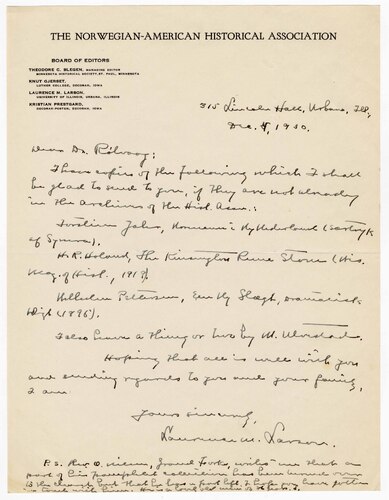 THE NORWEGIAN-AMERICAN HISTORICAL ASSOCIATION
BOARD OF EDITORS
THEODORE C. BLEGEN, MANAGING EDITOR
MINNESOTA HISTORICAL SOCIETY, ST. PAUL, MINNESOTA
KNUT GJERSET,
LUTHER COLLEGE, DECORAH, IOWA
LAURENCE M. LARSON,
UNIVERSITY OF ILLINOIS, URBANA, ILLINOIS
KRISTIAN PRESTGARD,
DECORAH-POSTEN, DECORAH, IOWA
315 Lincoln Hall, Urbana, Ill.,
Dec. 4, 1930.
Dear Dr. Rölvaag:
I have copies of the following which I shall
be glad to send to you, if they are not already
in the archives of the Hist. Assn.:
Jahr, Nordmenn i Ny Nederland (
of Symra).
H. R. Holand, The Kensington Rune Stone (Wis.
Mag. of Hist., 191
Wilhelm Pettersen, En Ny Slægt, Dramatisk
Digt (1895).
I also have a thing or two by M. Ulvestad.
Hoping that all is well with you
and sending regards to you and your family,
I am
Yours sincerely,
Laurence M. Larson.
P. S. Rev. O. Grand Forks, writes me that a
part of his pamphlet collection has been turned over
to the church but that he has a part left. I hope to have
in touch with him.